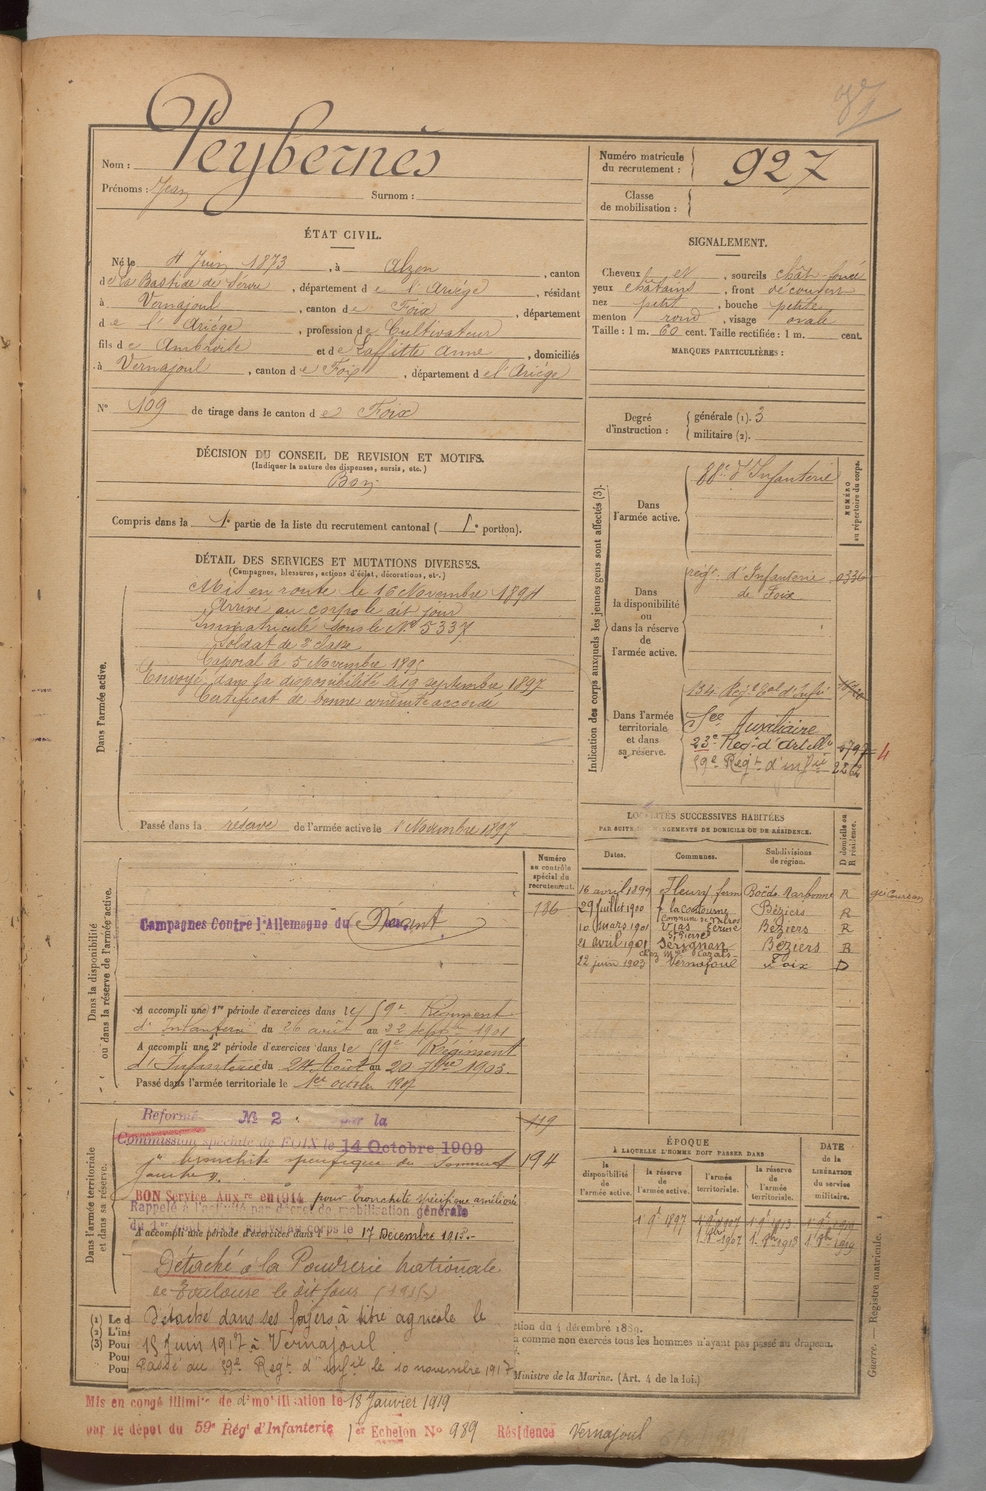 87
Nom : Peybernès
Prénoms : Jean Surnom :
Numéro matricule du recrutement : 927
Classe de mobilisation :
ÉTAT CIVIL.
Né le 4 Juin 1873, à Alzen, canton
de la Bastide de Sérou, département de l'Ariège, résidant
à Vernajoul, canton de Foix, département
de l'Ariège, profession de Cultivateur
fils de Ambroise et de Laffitte Anne, domiciliés
à Vernajoul, canton de Foix, département de l'Ariège
N° 109 de tirage dans le canton de Foix
SIGNALEMENT.
Cheveux et, sourcils chât-foncé
yeux châtains, front découvert
nez petit, bouche petite
menton rond, visage ovale
Taille : 1 m. 60 cent. Taille rectifiée : 1 m. cent.
MARQUES PARTICULIÈRES :
Degré d'instruction : générale (1). 3
militaire (2).
DÉCISION DU CONSEIL DE REVISION ET MOTIFS.
(Indiquer la nature des dispenses, sursis, etc.)
Bon
Compris dans la 1e partie de la liste du recrutement cantonal ( 1e portion).
DÉTAIL DES SERVICES ET MUTATIONS DIVERSES.
(Campagnes, blessures, actions d'éclat, décorations, etc.)
Dans l'armée active.
Mis en route le 16 Novembre 1894
Arrivé au corps le dit jour
Immatriculé sous le No 5337
Soldat de 2e classe
Caporal le 5 Novembre 1895
Envoyé dans la disponibilité le 19 septembre 1897
Certificat de bonne conduite accordé
Passé dans la réserve de l'armée active le 1 Novembre 1897
Indication des corps auxquels les jeunes gens sont affectés (3).
NUMÉRO au répertoire du corps.
Dans l'armée active.
88e d'Infanterie
Dans la disponibilité ou dans la réserve de l'armée active.
régt d'Infanterie de Foix 0336
Dans l'armée territoriale et dans sa réserve.
134 Régt Eal d'Infie
Sce Auxiliaire
23e Regt d'Artillie 4797 4
59e Regt d'Infie 2262
LOCALITÉS SUCCESSIVES HABITÉES
PAR SUITE DE CHANGEMENTS DE DOMICILE OU DE RÉSIDENCE.
Dates. Communes. Subdivisions de région. D domicile ou R résidence.
16 avril 1899 Fleury Narbonne R
29 Juillet 1900 Béziers R
10 mars 1901 Vias Béziers R
21 avril 1901 Sérignan Béziers R
22 juin 1903 Vernajoul Foix D
Dans la disponibilité ou dans la réserve de l'armée active.
Numéro au contrôle spécial du recrutement.
186
Campagnes Contre l'Allemagne du Néant
A accompli une 1re période d'exercices dans le 59e Régiment
d'Infanterie du 26 août au 22 Septbre 1901
A accompli une 2e période d'exercices dans le 59e Régiment
d'Infanterie du 24 Août au 20 7bre 1903
Passé dans l'armée territoriale le 1er octobre 1907
Dans l'armée territoriale et dans sa réserve.
119
194
Réformé No 2 par la
Commission spéciale de FOIX le 14 Octobre 1909
bronchite spécifique du Sommet
gauche
BON Service Auxre en 1914 pour bronchite spécifique améliorée
Rappelé à l'activité par décret de mobilisation générale
du 1er Août 1914, arrivé au corps le 17 Décembre 1915
A accompli une période d'exercices dans l
Détaché à la Poudrerie Nationale
de Toulouse le dit jour (1915)
Détaché dans ses foyers à titre agricole le
15 Juin 1917 à Vernajoul
Passé au 59e Regt d'Infie le 10 novembre 1917
ÉPOQUE
À LAQUELLE L'HOMME DOIT PASSER DANS
la disponibilité de l'armée active. la réserve de l'armée active. l'armée territoriale. la réserve de l'armée territoriale.
DATE de la LIBÉRATION du service militaire.
1 9bre 1897 1 9bre 1907 1 9bre 1913 1 9bre 1919
1 8bre 1907 1 8bre 1913 1 8bre 1919
(1) Le d
(2) L'ins
(3) Pour
Pour
Pour
ction du 4 décembre 1889.
à comme non exercés tous les hommes n'ayant pas passé au drapeau.
Ministre de la Marine. (Art. 4 de la loi.)
Guerre. — Registre matricule. 1
Mis en congé illimité de démobilisation le 18 Janvier 1919
par le dépôt du 59e Régt d'Infanterie 1er Echelon No 989 Résidence Vernajoul